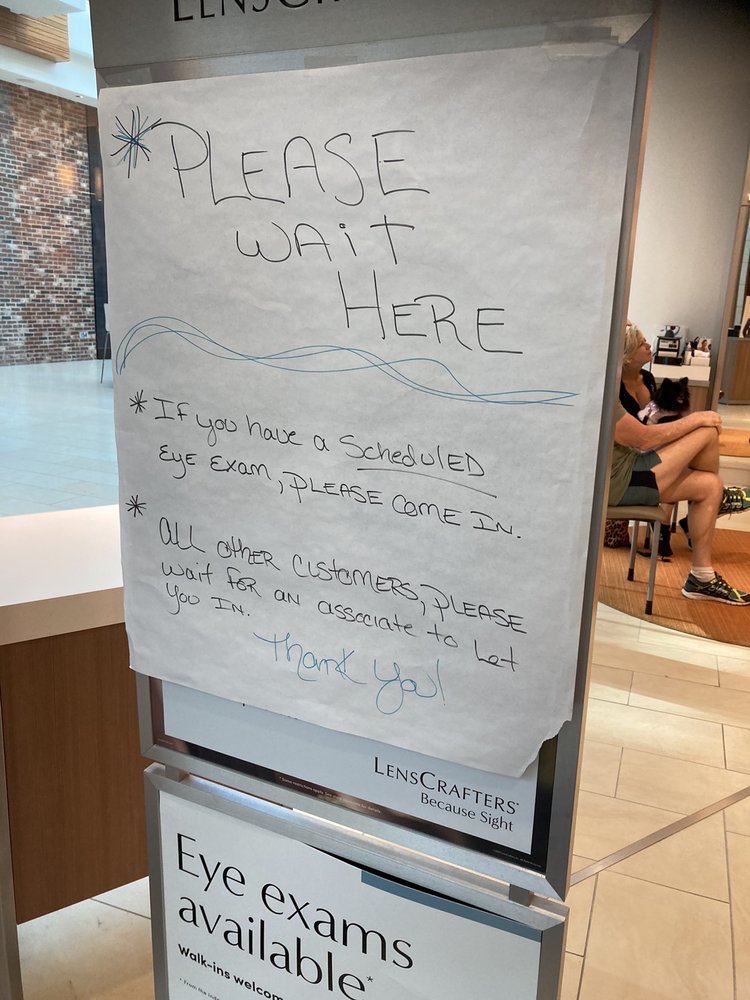 LENSCRA
*PLEASE
WAIT
HERE
* If you have a ScheduLED
Eye Exam, PLEASE Come In.
* ALL other Customers, PLEASE
wait for an associate to Let
you In.
Thank You!
LENSCRAFTERS®
Because Sight
Eye exams
available*
Walk-ins welcom